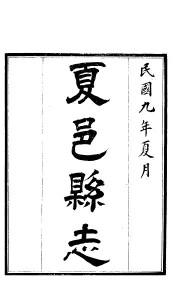 民國九年夏月
夏邑縣志